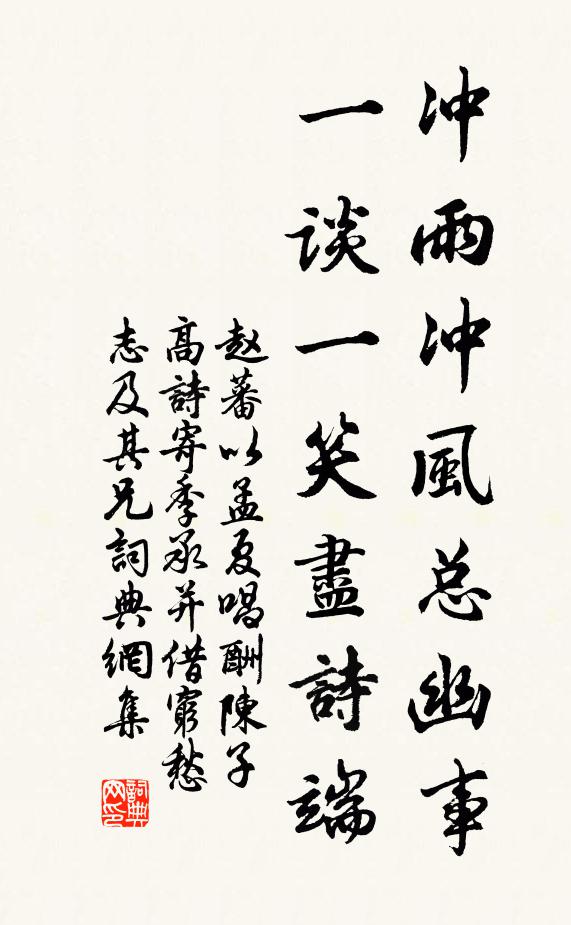 冲雨冲风总幽事
一谈一笑盡詩端
赵蕃以孟夏唱酬陳子
高詩寄季承并借窮愁
志及其兄詞典網集
詞典
网印